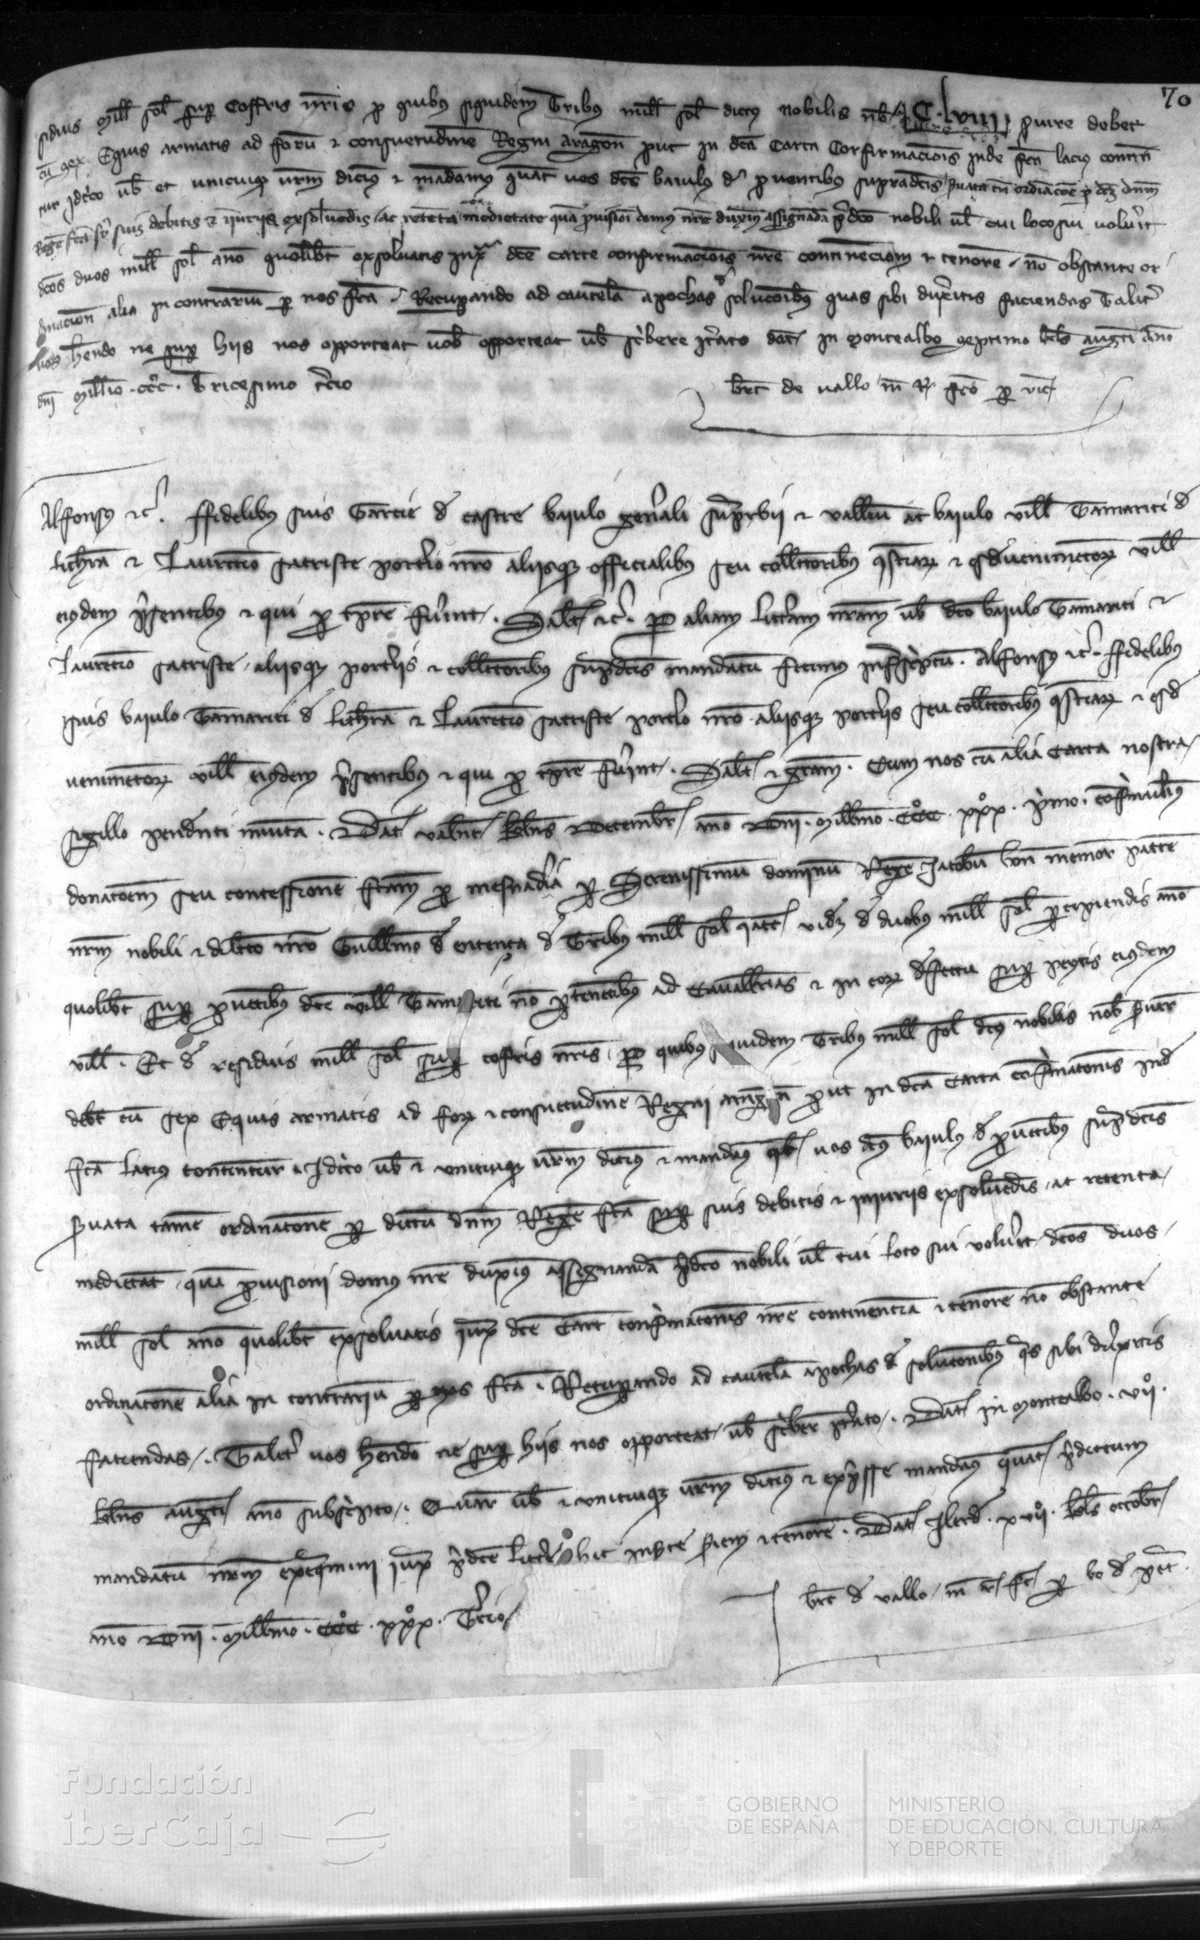 70
siduis mill sol sup Coffris nris p quibus siquidem Tribus mill sol dictus nobilis nob C lviiii suire debet
cu sex Equis armatis ad foru & consuetudine Regni Aragon put in dca Carta Confirmacionis inde fca lacius contin
tur Idcirco vob et unicuiq vrm dicim & mandam quat vos dcs baiulus de puentibus supradcis suata tn ordiacoe p dcm dnm
Rege fca sr suis debitis & iniuriis exsoluedis ac retenta medietate qua puisioi domus nre duxim assignada pdco nobili ul cui loco sui voluit
dcos duos mill sol ano quolibt exsoluatis iux dce carte confirmacionis nre continenciam & tenore no obstante or
dinacion alia in contrariu p nos fca Recupando ad cautela apochas de solucoibus quas sibi duxitis faciendas Talit
vos hendo ne sup hiis nos opporteat vob opporteat vob scribere itato dat in Montealbo septimo kls augti Ano
dni Millio ccc Tricesimo tcio
brt de vallo m R fco p vic
Alfonsus &c ffidelibus suis Garcie de castre baiulo genali suprbii & valliu ac baiulo vill Tamariti de
lithra & Laurecio satriste portio nro aliisq officialibus seu collectoribus qstiar & esdeueniметor vill
eiusdem psentibus & qui p tpre fuint Salt &c P aliam littam nram vob dco baiulo Tamariti &
laurecio satriste aliisq portiis & collectoribus supdcis mandatu fecimus infrascriptu Alfonsus &c ffidelibus
suis baiulo Tamariti de lithra & Laurecio satriste portio nro aliisq portiis seu collectoribus qstiar & esde
venimetor vill eiusdem psentibus & qui p tpre fuint Salt & gram Cum nos cu alia Carta nostra
sigillo pendenti munita Dat Valnc klns Decembr ano Dni Millmo CCC xxx pmo confimauimus
donacoem seu concessione fcam p mesnadia p Serenissimu dominu Rege Jacobu bon memor patre
nrm nobili & dilcto nro Guillmo de entença de Tribus mill sol iacc videt de duobus mill sol pcipiendis ano
quolibt sup puetibus dce vill Tamariti no ptenetibus ad Cauallias & in eor defectu sup peytis eiusdem
vill Et de residuis mill sol sup cofris nris P quibus siquidem Tribus mill sol dcus nobilis nob suire
debt cu sex Equis armatis ad for & consuetudine Regni aragon put in dca Carta confirmatonis inde
fca latius continetur Idcirco vob & unicuiq vrm dicim & mandam qt vos dcus baiulus de puetibus supdcis
suata tame ordinatone p dictu dnm Rege fca sup suis debitis & iniuriis exsoluedis ac retenta
medietate qua puisioni domus nre duximus assignanda pdco nobili ul cui loco sui voluit dcos duos
mill sol ano quolibt exsoluatis iux dce Cart confirmatonis nre continencia & tenore no obstante
ordinatone alia in contrariu p nos fca Recupando ad cautela apochas de solucionibus qs sibi duxitis
faciendas Talit vos hendo ne sup hiis nos opporteat vob scriber itato Dat in Montealbo vii
klns augti ano subscripto Quar vob & unicuiq vrm dicim & expsse mandam quat pdictum
mandatu nrm exequmini iux pdce littere hic inste siem & tenore Dat Ilerde xvii kls octobr
ano Dni Millmo CCC xxx Tcio
brt de vallo m R fc p bo de pet
Fundación
iberCaja
GOBIERNO
DE ESPAÑA
MINISTERIO
DE EDUCACIÓN, CULTURA
Y DEPORTE